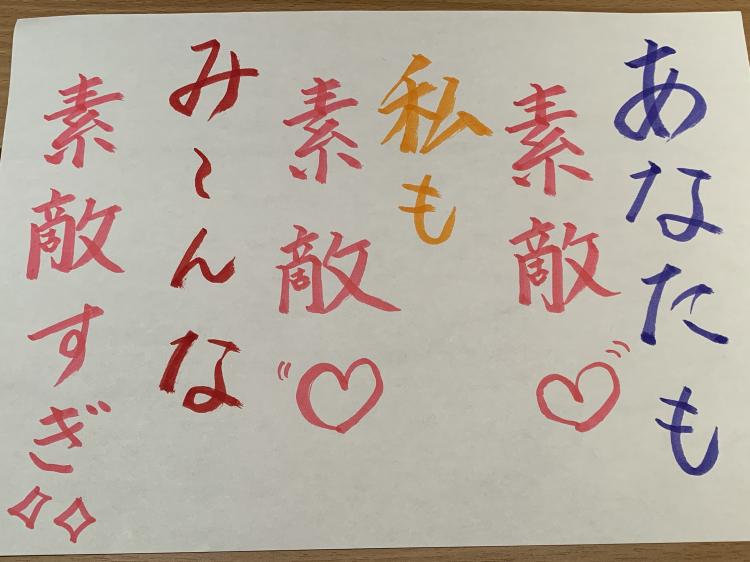 あなたも
素敵♡
私も
素敵♡
み〜んな
素敵すぎ✧✧